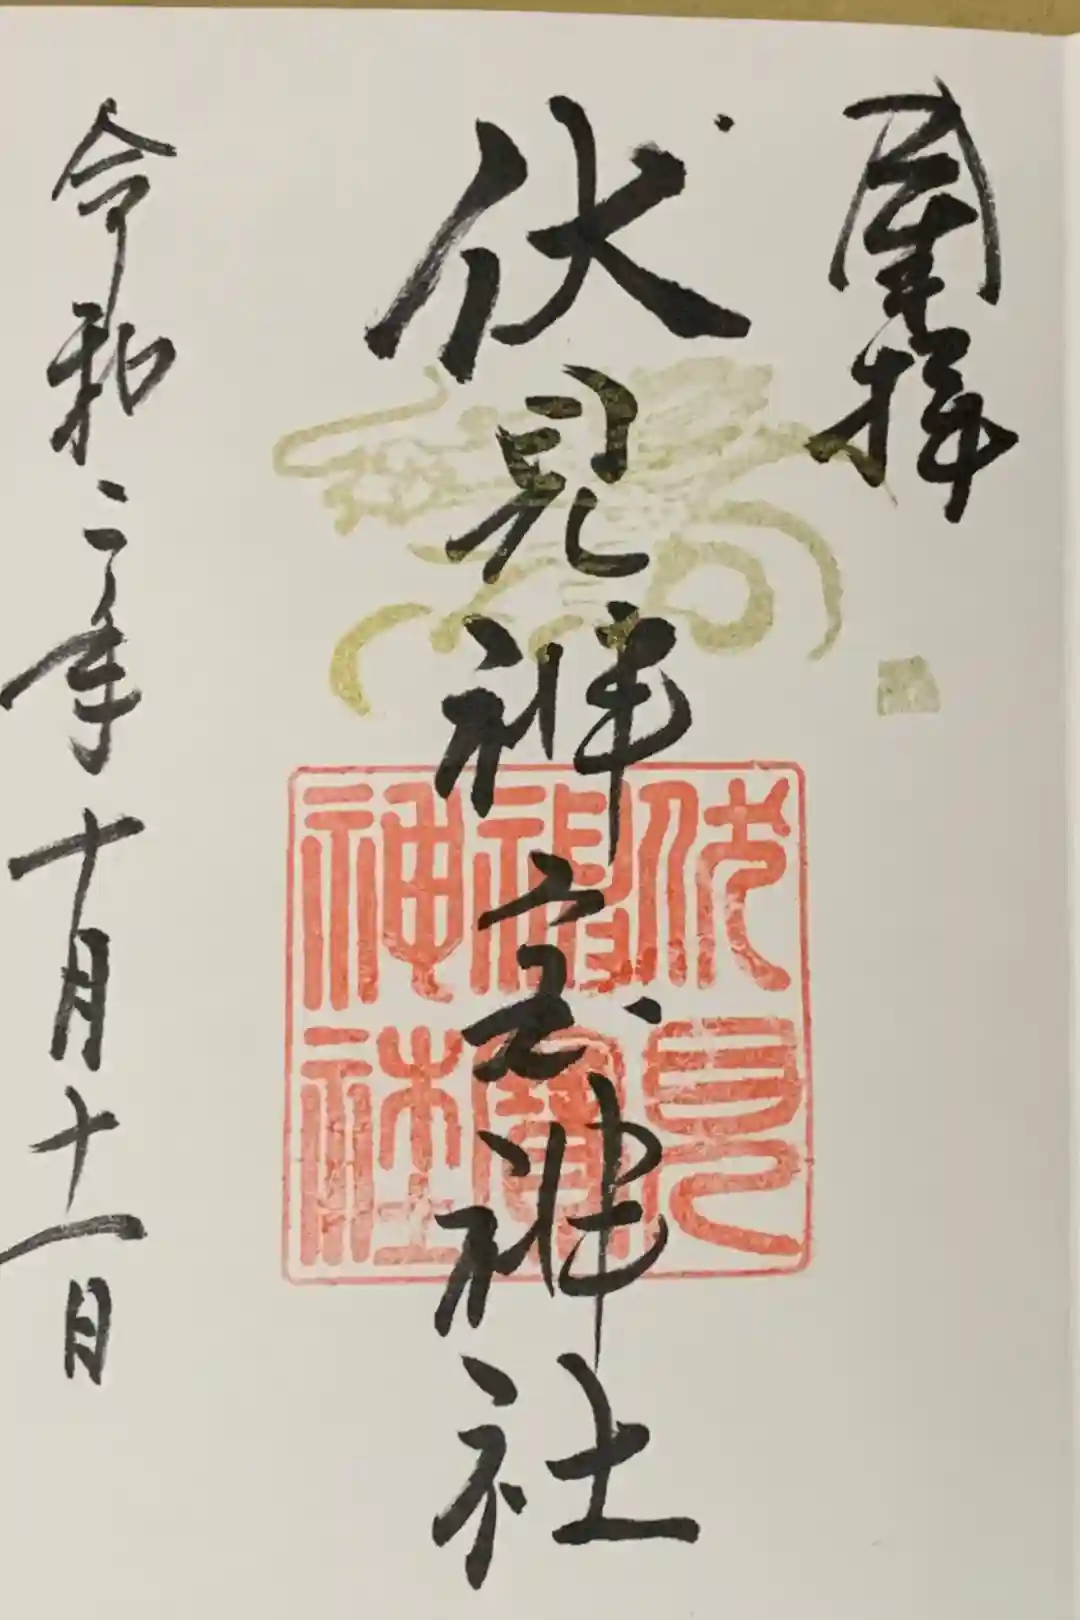 拝
伏見神宝神社
伏見
神寶
神社
令和二年十月十一日